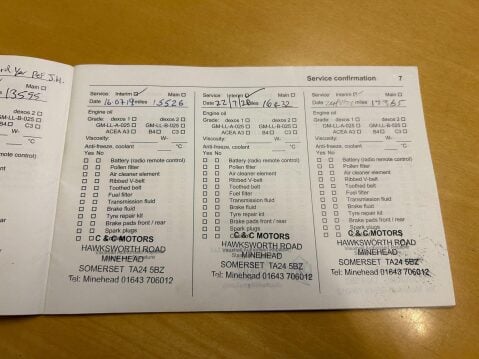 13595
Service confirmation 7
Service: Interim ☑ Main ☐
Date 16.07.19 miles 15526
Engine oil
Grade: dexos 1 ☐ dexos 2 ☐
GM-LL-A-025 ☐ GM-LL-B-025 ☐
ACEA A3 ☐ B4 ☐ C3 ☐
Viscosity: W-
Anti-freeze, coolant °C
Yes No
☐ ☐ Battery (radio remote control)
☐ ☐ Pollen filter
☐ ☐ Air cleaner element
☐ ☐ Ribbed V-belt
☐ ☐ Toothed belt
☐ ☐ Fuel filter
☐ ☐ Transmission fluid
☐ ☐ Brake fluid
☐ ☐ Tyre repair kit
☐ ☐ Brake pads front / rear
☐ ☐ Spark plugs
C & C MOTORS
HAWKSWORTH ROAD
MINEHEAD
SOMERSET TA24 5BZ
Tel: Minehead 01643 706012
Service: Interim ☑ Main ☐
Date 22/7/20 miles
Engine oil
Grade: dexos 1 ☐ dexos 2 ☐
GM-LL-A-025 ☐ GM-LL-B-025 ☐
ACEA A3 ☐ B4 ☐ C3 ☐
Viscosity: W-
Anti-freeze, coolant °C
Yes No
☐ ☐ Battery (radio remote control)
☐ ☐ Pollen filter
☐ ☐ Air cleaner element
☐ ☐ Ribbed V-belt
☐ ☐ Toothed belt
☐ ☐ Fuel filter
☐ ☐ Transmission fluid
☐ ☐ Brake fluid
☐ ☐ Tyre repair kit
☐ ☐ Brake pads front / rear
☐ ☐ Spark plugs
C & C MOTORS
HAWKSWORTH ROAD
MINEHEAD
SOMERSET TA24 5BZ
Tel: Minehead 01643 706012
Service: Interim ☑ Main ☐
Date miles 17365
Engine oil
Grade: dexos 1 ☐ dexos 2 ☐
GM-LL-A-025 ☐ GM-LL-B-025 ☐
ACEA A3 ☐ B4 ☐ C3 ☐
Viscosity: W-
Anti-freeze, coolant °C
Yes No
☐ ☐ Battery (radio remote control)
☐ ☐ Pollen filter
☐ ☐ Air cleaner element
☐ ☐ Ribbed V-belt
☐ ☐ Toothed belt
☐ ☐ Fuel filter
☐ ☐ Transmission fluid
☐ ☐ Brake fluid
☐ ☐ Tyre repair kit
☐ ☐ Brake pads front / rear
☐ ☐ Spark plugs
C & C MOTORS
HAWKSWORTH ROAD
MINEHEAD
SOMERSET TA24 5BZ
Tel: Minehead 01643 706012